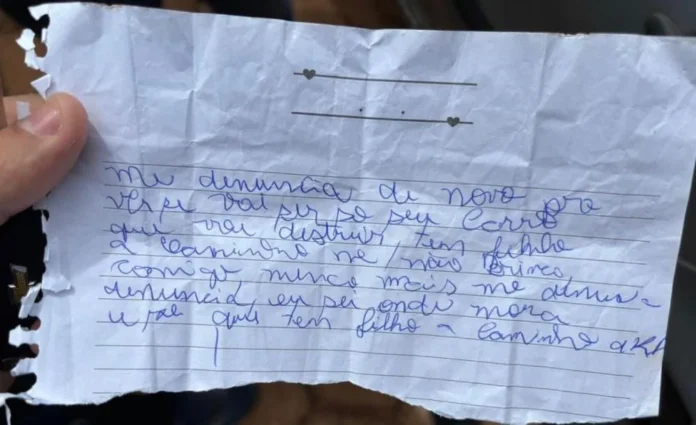 me denuncia de novo pra
ver se vai ser so seu carro
que vai destruir, tem filho
a caminho né, não brinco
comigo nunca mais me denun-
denuncia, eu sei onde mora
que tem filho a caminho